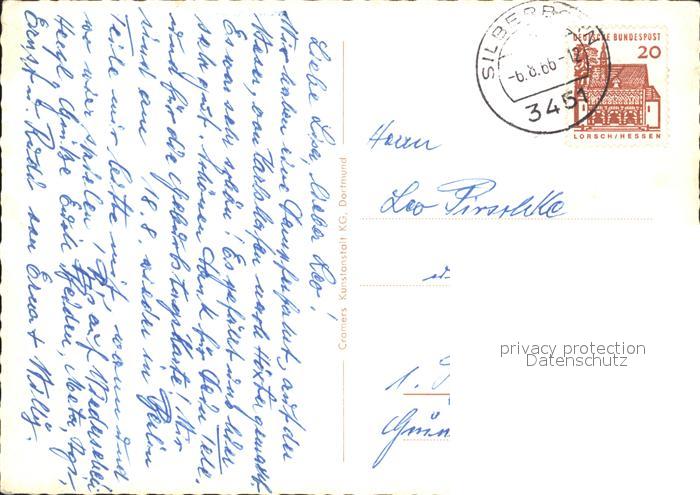 Liebe Lisa, lieber Leo!
Wir haben eine Dampferfahrt, auf der
Weser, von Karlshafen nach Höxter gemacht.
Es war sehr schön! Es gefällt uns hier
sehr gut. Schönen Dank für Dein Tele.
und für die Geburtstagskarte! Wir
sind am 18.8. wieder in Berlin
Teile mir bitte mit, wann und
wo wir spielen! Auf Wiedersehen
Herzl. Grüße Euch Beiden, Meta,
Ernst u. Rudi von Erna + Willy.
Cramers Kunstanstalt KG, Dortmund
SILBERBORN
-6.8.66-12
3451
DEUTSCHE BUNDESPOST
20
LORSCH/HESSEN
Herrn
Leo Pirschke
1.
privacy protection
Datenschutz